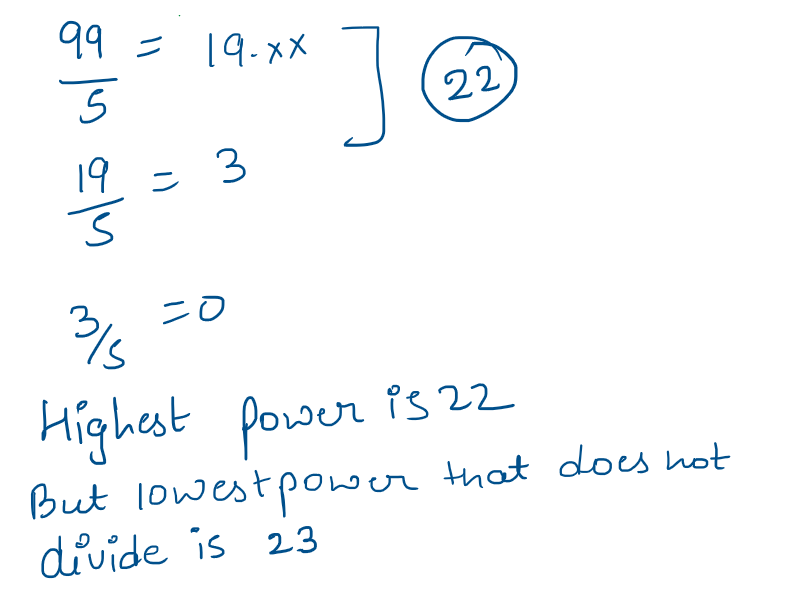 99/5 = 19.xx ] 22
19/5 = 3
3/5 = 0
Highest power is 22
But lowest power that does not
divide is 23